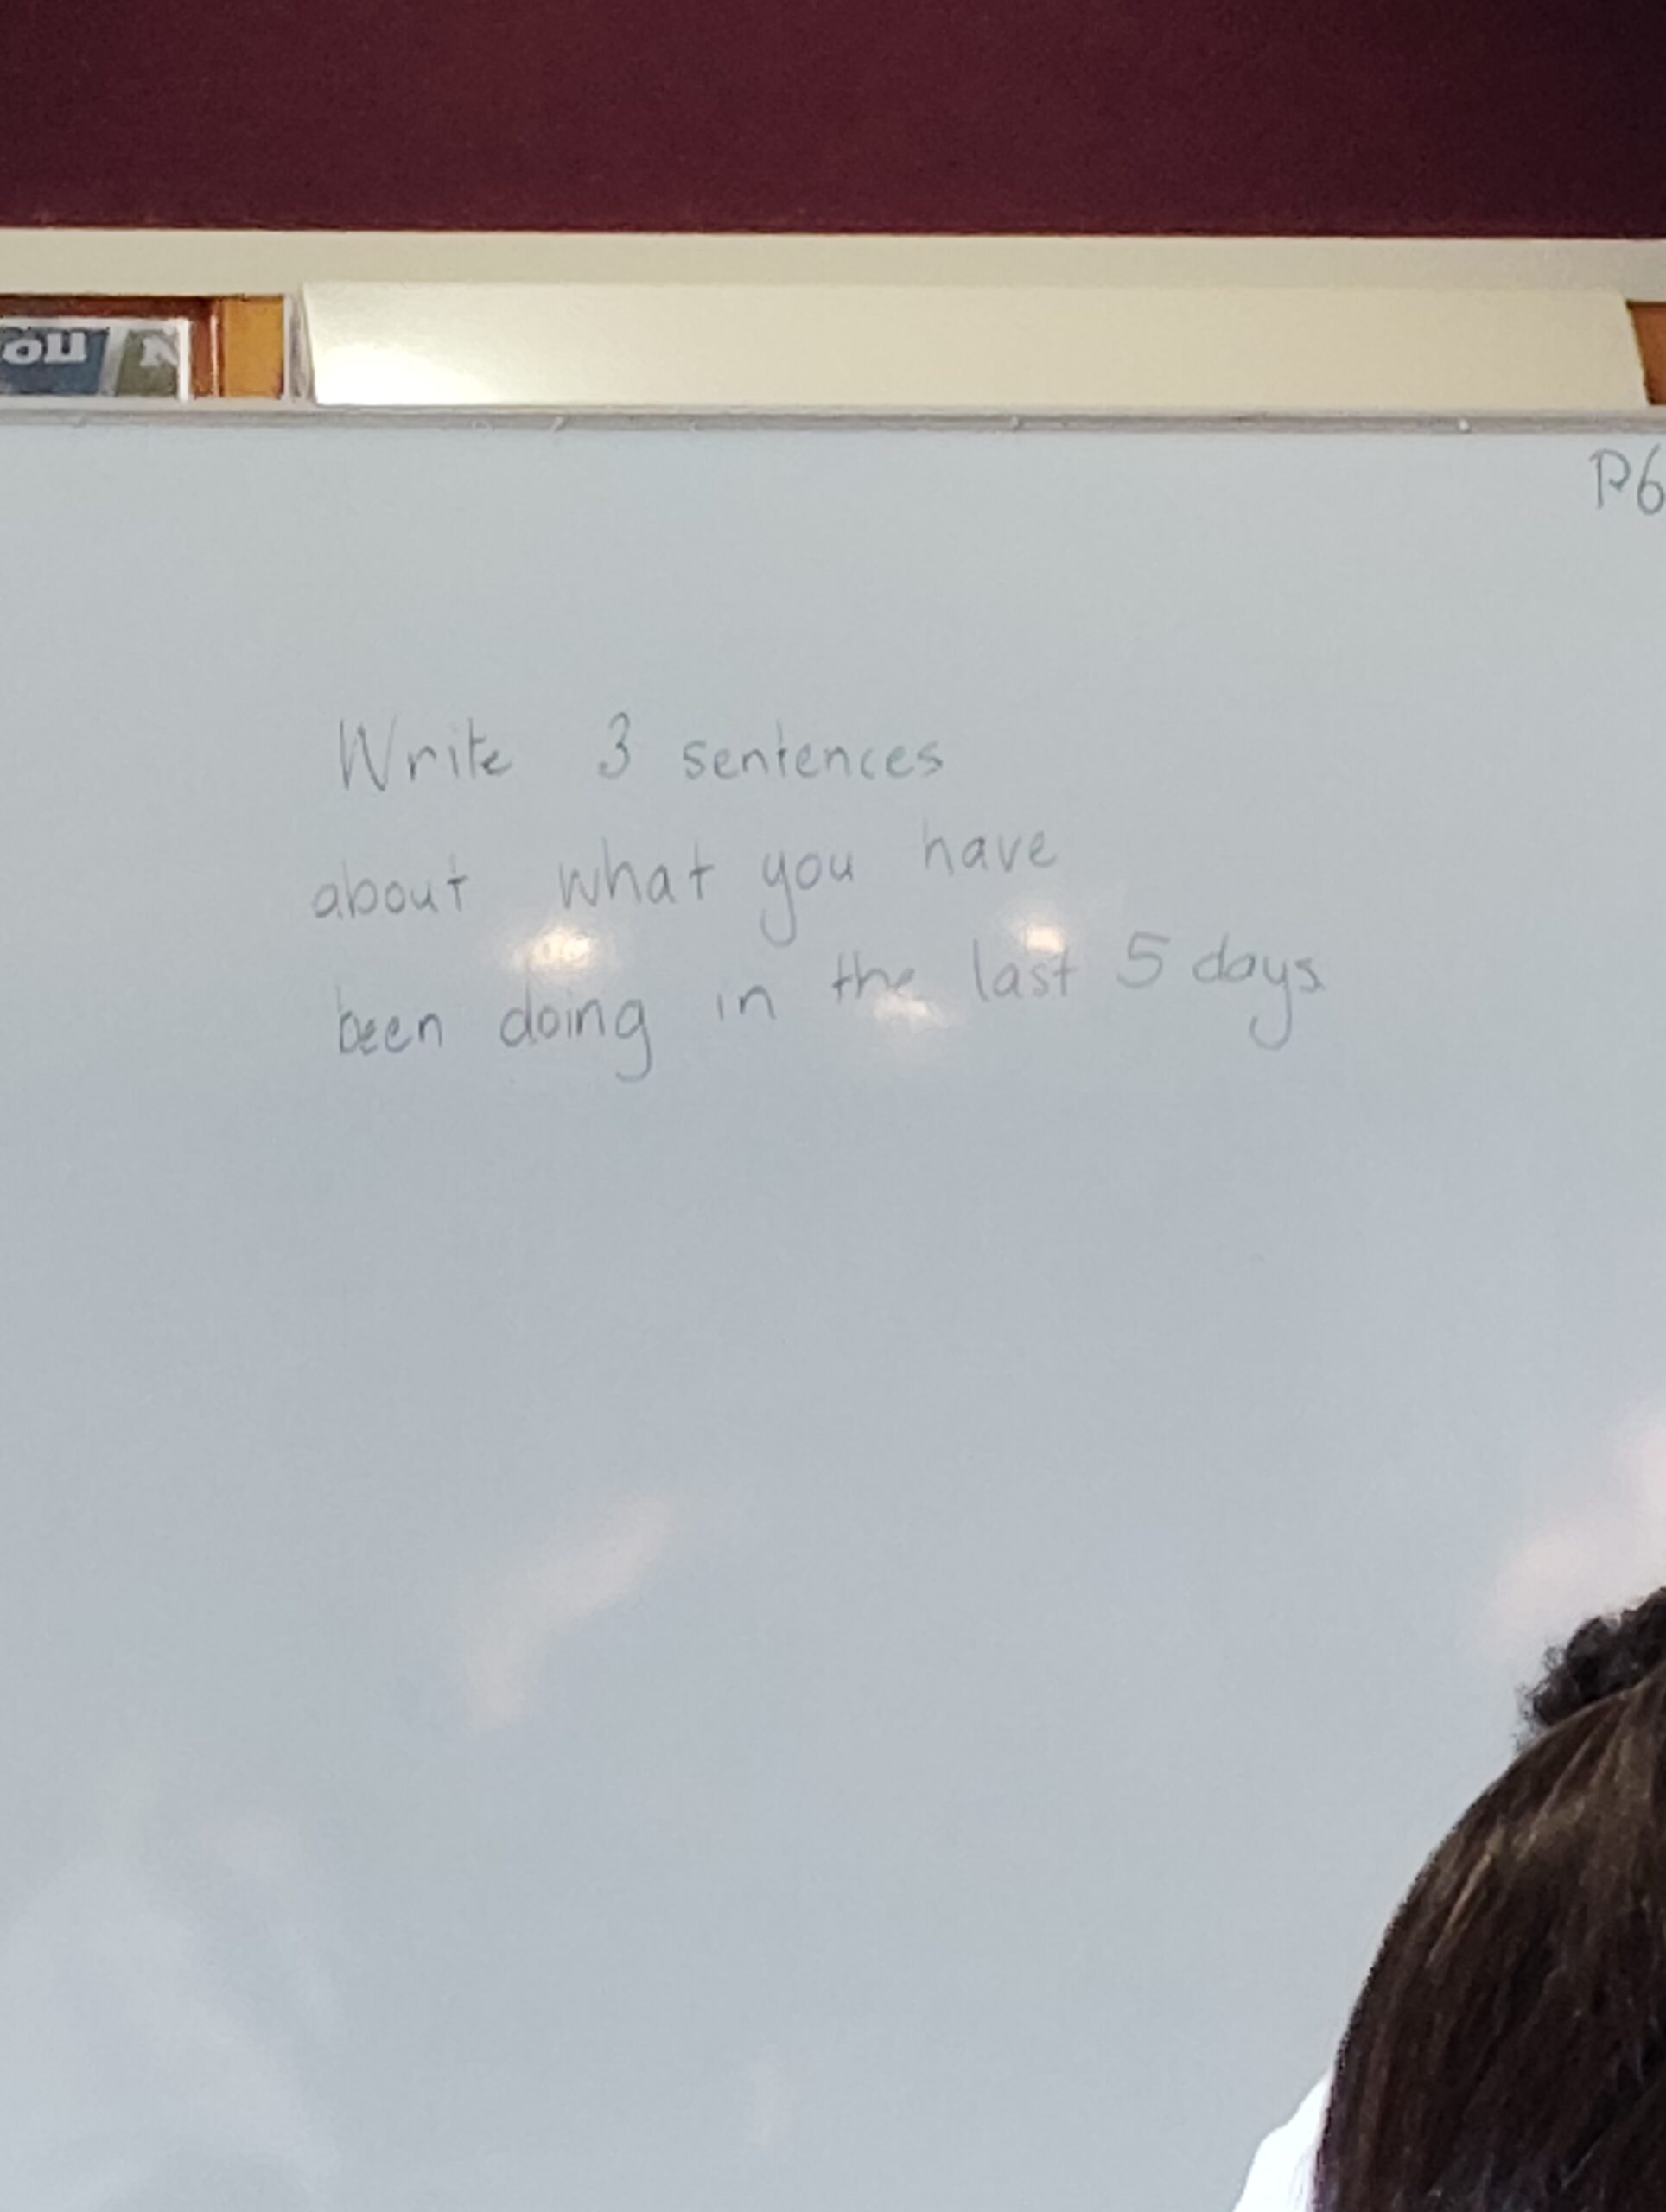 ou N
P6
Write 3 sentences
about what you have
been doing in the last 5 days